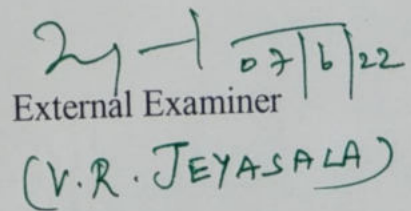 07/6/22
External Examiner
(V.R. JEYASALA)